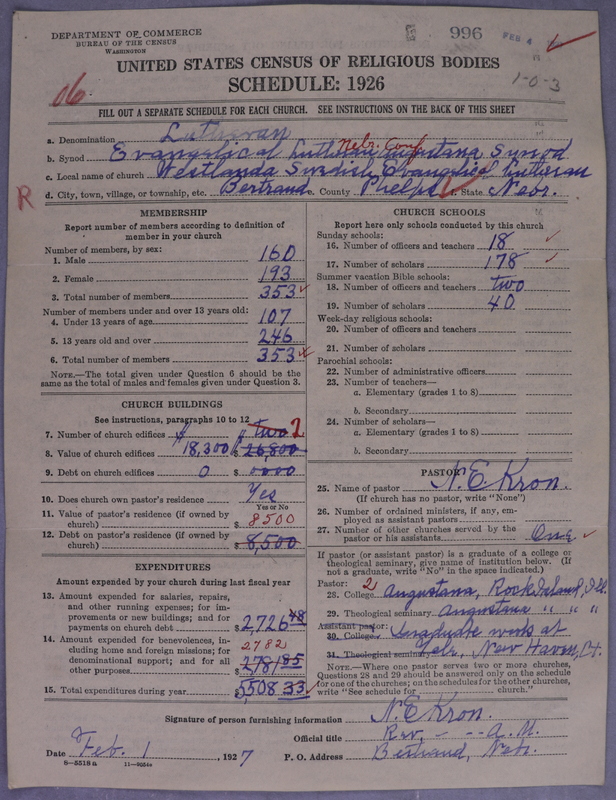 DEPARTMENT OF COMMERCE
BUREAU OF THE CENSUS
WASHINGTON
996
FEB 4
1-0-3
06
R
UNITED STATES CENSUS OF RELIGIOUS BODIES
SCHEDULE: 1926
FILL OUT A SEPARATE SCHEDULE FOR EACH CHURCH. SEE INSTRUCTIONS ON THE BACK OF THIS SHEET
a. Denomination Lutheran
Nebr. Conf
b. Synod Evangelical Lutheran Augustana Synod
c. Local name of church Westlanda Swedish Evangelical Lutheran
d. City, town, village, or township, etc. Bertrand e. County Phelps f. State Nebr.
MEMBERSHIP
Report number of members according to definition of
member in your church
Number of members, by sex:
1. Male 160
2. Female 193
3. Total number of members 353
Number of members under and over 13 years old:
4. Under 13 years of age 107
5. 13 years old and over 246
6. Total number of members 353
NOTE.—The total given under Question 6 should be
same as the total of males and females given under Question 3.
CHURCH BUILDINGS
See instructions, paragraphs 10 to 12
7. Number of church edifices two
8. Value of church edifices 18,300 $ 26,800
9. Debt on church edifices 0 $ 0000
10. Does church own pastor's residence Yes
Yes or No
11. Value of pastor's residence (if owned by
church) $ 8500
12. Debt on pastor's residence (if owned by
church) $ 8,500
EXPENDITURES
Amount expended by your church during last fiscal year
13. Amount expended for salaries, repairs,
and other running expenses; for im-
provements or new buildings; and for
payments on church debt $ 2,726 48
14. Amount expended for benevolences, in-
cluding home and foreign missions; for
denominational support; and for all
other purposes 2782 $ 2781 85
15. Total expenditures during year $ 5508 33
CHURCH SCHOOLS
Report here only schools conducted by this church
Sunday schools:
16. Number of officers and teachers 18
17. Number of scholars 178
Summer vacation Bible schools:
18. Number of officers and teachers two
19. Number of scholars 40
Week-day religious schools:
20. Number of officers and teachers
21. Number of scholars
Parochial schools:
22. Number of administrative officers
23. Number of teachers—
a. Elementary (grades 1 to 8)
b. Secondary
24. Number of scholars—
a. Elementary (grades 1 to 8)
b. Secondary
PASTOR
25. Name of pastor N. E. Kron.
(If church has no pastor, write "None")
26. Number of ordained ministers, if any, em-
ployed as assistant pastors
27. Number of other churches served by the
pastor or his assistants One
If pastor (or assistant pastor) is a graduate of a college or
theological seminary, give name of institution below. (If
not a graduate, write "No" in the space indicated.)
Pastor: 2
28. College Augustana, Rock Island, Ill.
29. Theological seminary Augustana " " "
Assistant pastor:
30. College Graduate work at
31. Theological seminary Yale, New Haven, Ct.
NOTE.—Where one pastor serves two or more churches,
Questions 28 and 29 should be answered only on the schedule
for one of the churches; on the schedules for the other churches,
write "See schedule for church."
Signature of person furnishing information N. E. Kron.
Official title Rev. - - - A. M.
Date Feb. 1, 1927
P. O. Address Bertrand, Nebr.
8—5518 a